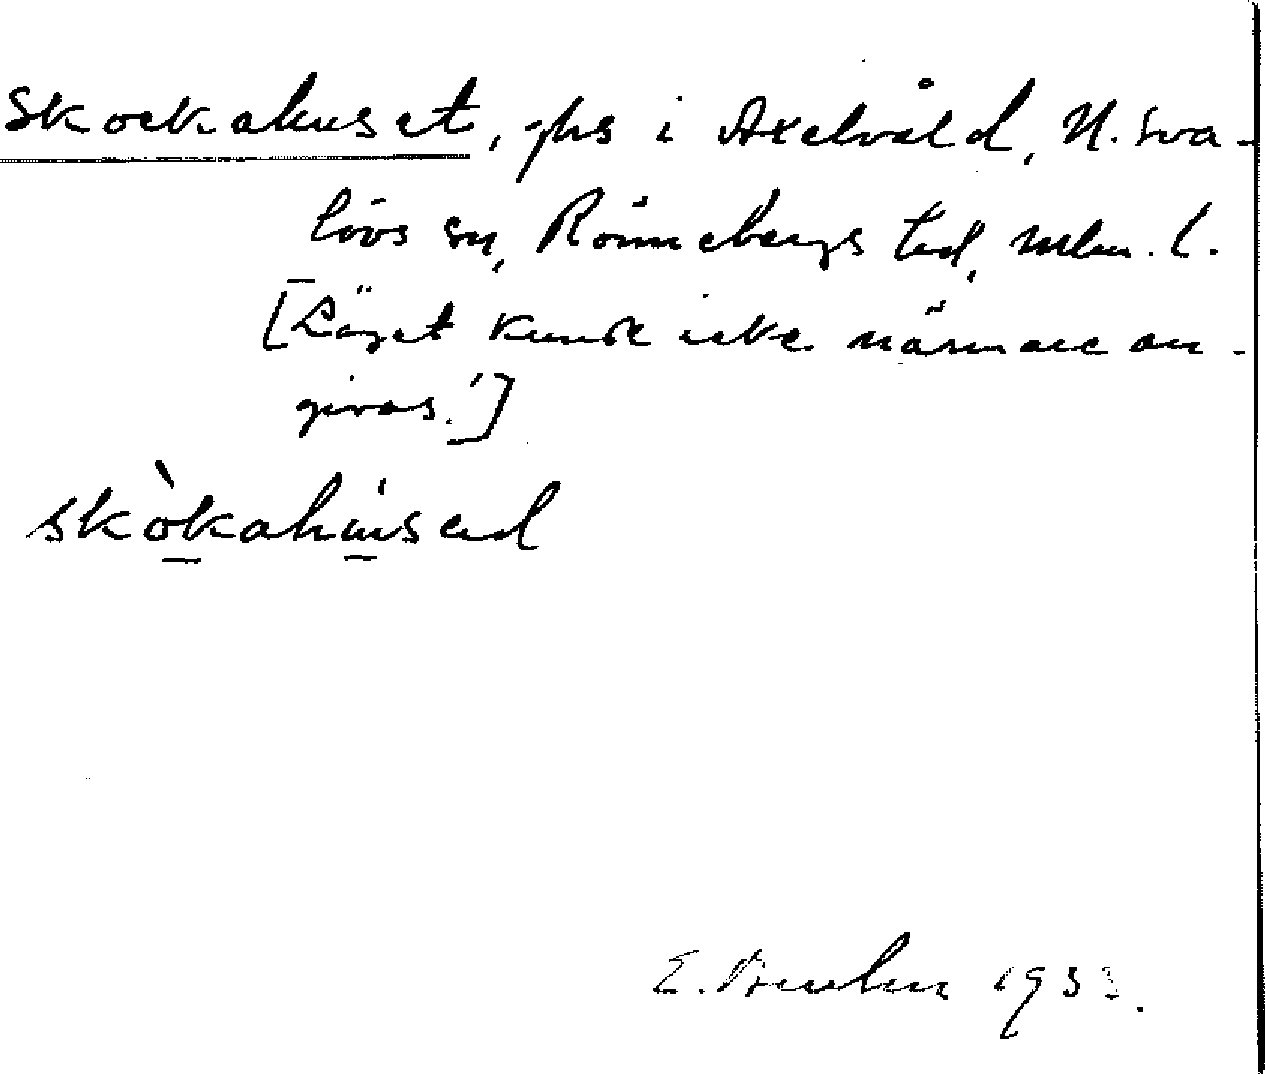 Skockahuset, ghs i Axelvåld, N. Sva-
lövs sn, Rönnebergs hd, Mlm. l.
[Läget kunde icke närmare an-
givas.']
skòkahúsed
E. 1933.